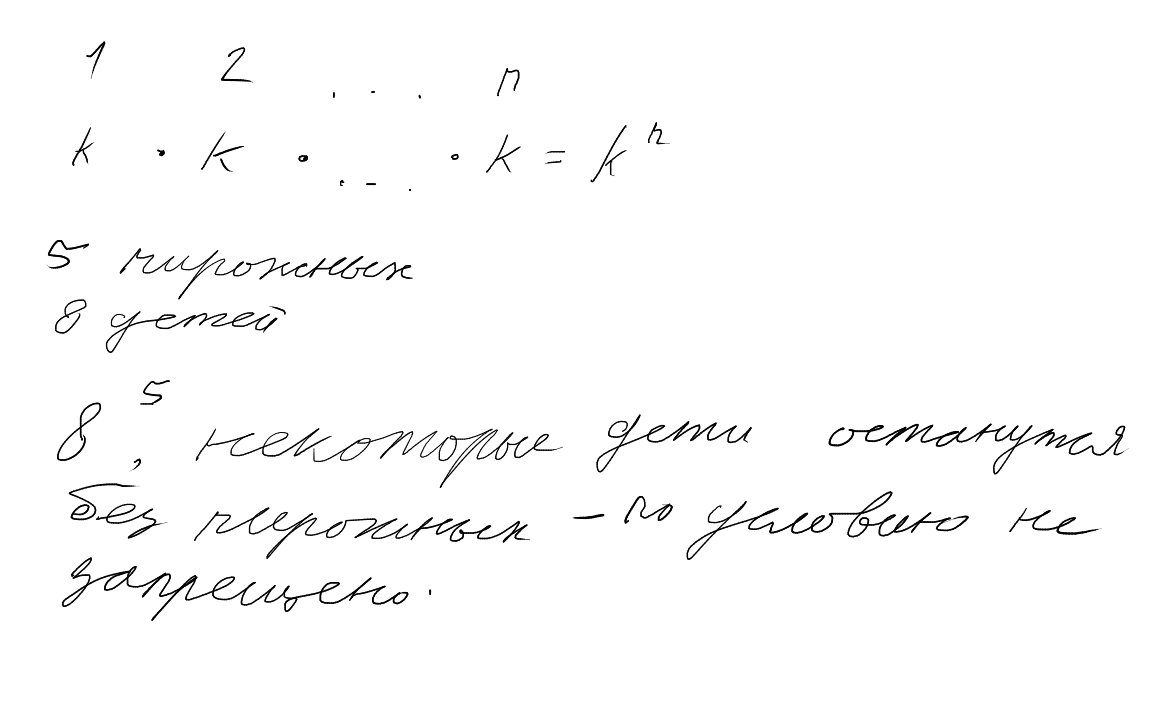 1 2 ... n
k · k · ... · k = kⁿ
5 пирожных
8 детей
8⁵, некоторые дети останутся
без пирожных – по условию не
запрещено.